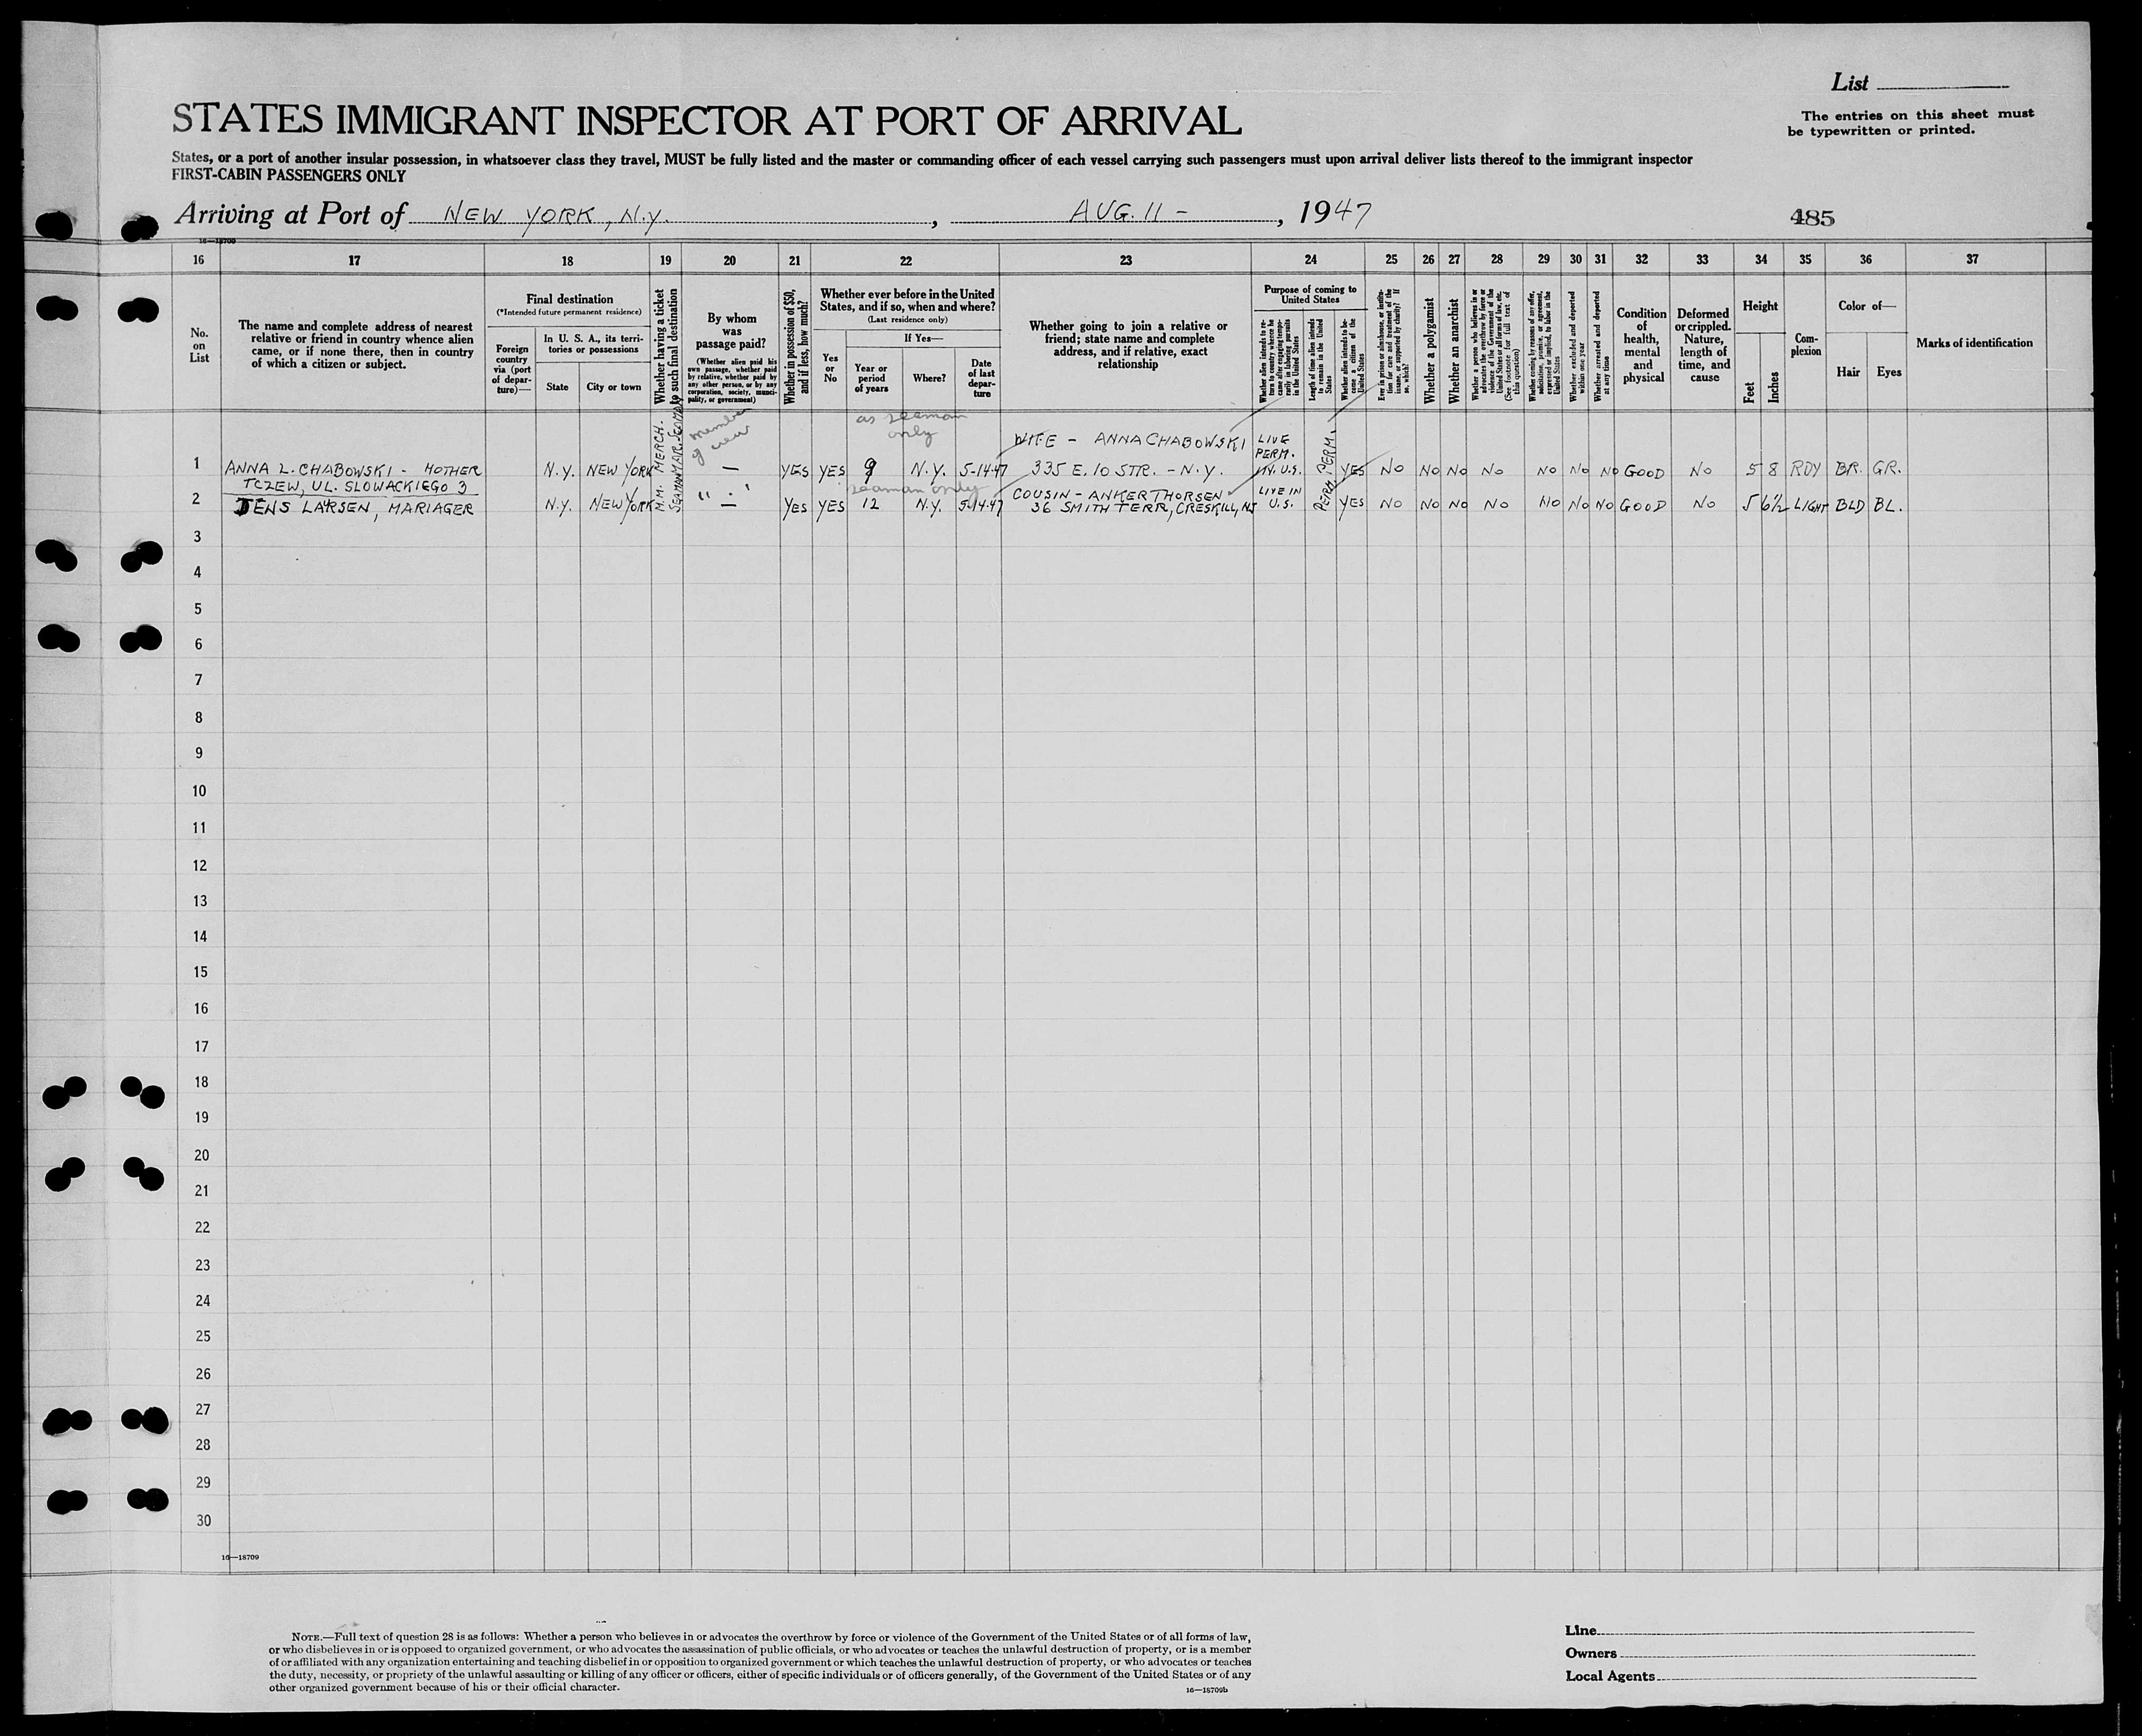 List
STATES IMMIGRANT INSPECTOR AT PORT OF ARRIVAL
The entries on this sheet must
be typewritten or printed.
States, or a port of another insular possession, in whatsoever class they travel, MUST be fully listed and the master or commanding officer of each vessel carrying such passengers must upon arrival deliver lists thereof to the immigrant inspector
FIRST-CABIN PASSENGERS ONLY
Arriving at Port of NEW YORK, N.Y. , AUG. 11 - , 1947
485
16—18709
16 17 18 19 20 21 22 23 24 25 26 27 28 29 30 31 32 33 34 35 36 37
No.
on
List
The name and complete address of nearest
relative or friend in country whence alien
came, or if none there, then in country
of which a citizen or subject.
Final destination
(*Intended future permanent residence)
Foreign
country
via (port
of depar-
ture)—
In U. S. A., its terri-
tories or possessions
State
City or town
Whether having a ticket
to such final destination
By whom
was
passage paid?
(Whether alien paid his
own passage, whether paid
by relative, whether paid by
any other person, or by any
corporation, society, munici-
pality, or government)
Whether in possession of $50,
and if less, how much?
Whether ever before in the United
States, and if so, when and where?
(Last residence only)
Yes
or
No
If Yes—
Year or
period
of years
Where?
Date
of last
depar-
ture
Whether going to join a relative or
friend; state name and complete
address, and if relative, exact
relationship
Purpose of coming to
United States
Whether alien intends to re-
turn to country whence he
came after engaging tempo-
rarily in laboring pursuits
in the United States
Length of time alien intends
to remain in the United
States
Whether alien intends to be-
come a citizen of the
United States
Ever in prison or almshouse, or institu-
tion for care and treatment of the
insane, or supported by charity? If
so, which?
Whether a polygamist
Whether an anarchist
Whether a person who believes in or
advocates the overthrow by force or
violence of the Government of the
United States or all forms of law, etc.
(See footnote for full text of
this question)
Whether coming by reasons of any offer,
solicitation, promise, or agreement,
expressed or implied, to labor in the
United States
Whether excluded and deported
within one year
Whether arrested and deported
at any time
Condition
of
health,
mental
and
physical
Deformed
or crippled.
Nature,
length of
time, and
cause
Height
Feet
Inches
Com-
plexion
Color of—
Hair
Eyes
Marks of identification
member
of crew
as seaman
only
WIFE - ANNA CHABOWSKI
LIVE
PERM.
1 ANNA L. CHABOWSKI - MOTHER N.Y. NEW YORK M.M. MERCH. — YES YES 9 N.Y. 5-14-47 335 E. 10 STR. - N.Y. IN. U.S. PERM. YES NO NO NO NO NO NO NO GOOD NO 5 8 RDY BR. GR.
TCZEW, UL. SLOWACKIEGO 3
seaman only
COUSIN - ANKER THORSEN
LIVE IN
2 JENS LARSEN, MARIAGER N.Y. NEW YORK SEAMAN " . " — YES YES 12 N.Y. 5-14-47 36 SMITH TERR, CRESKILL, NJ U.S. PERM YES NO NO NO NO NO NO NO GOOD NO 5 6½ LIGHT BLD BL.
3
4
5
6
7
8
9
10
11
12
13
14
15
16
17
18
19
20
21
22
23
24
25
26
27
28
29
30
16—18709
NOTE.—Full text of question 28 is as follows: Whether a person who believes in or advocates the overthrow by force or violence of the Government of the United States or of all forms of law,
or who disbelieves in or is opposed to organized government, or who advocates the assassination of public officials, or who advocates or teaches the unlawful destruction of property, or is a member
of or affiliated with any organization entertaining and teaching disbelief in or opposition to organized government or which teaches the unlawful destruction of property, or who advocates or teaches
the duty, necessity, or propriety of the unlawful assaulting or killing of any officer or officers, either of specific individuals or of officers generally, of the Government of the United States or of any
other organized government because of his or their official character.
16—18709b
Line
Owners
Local Agents